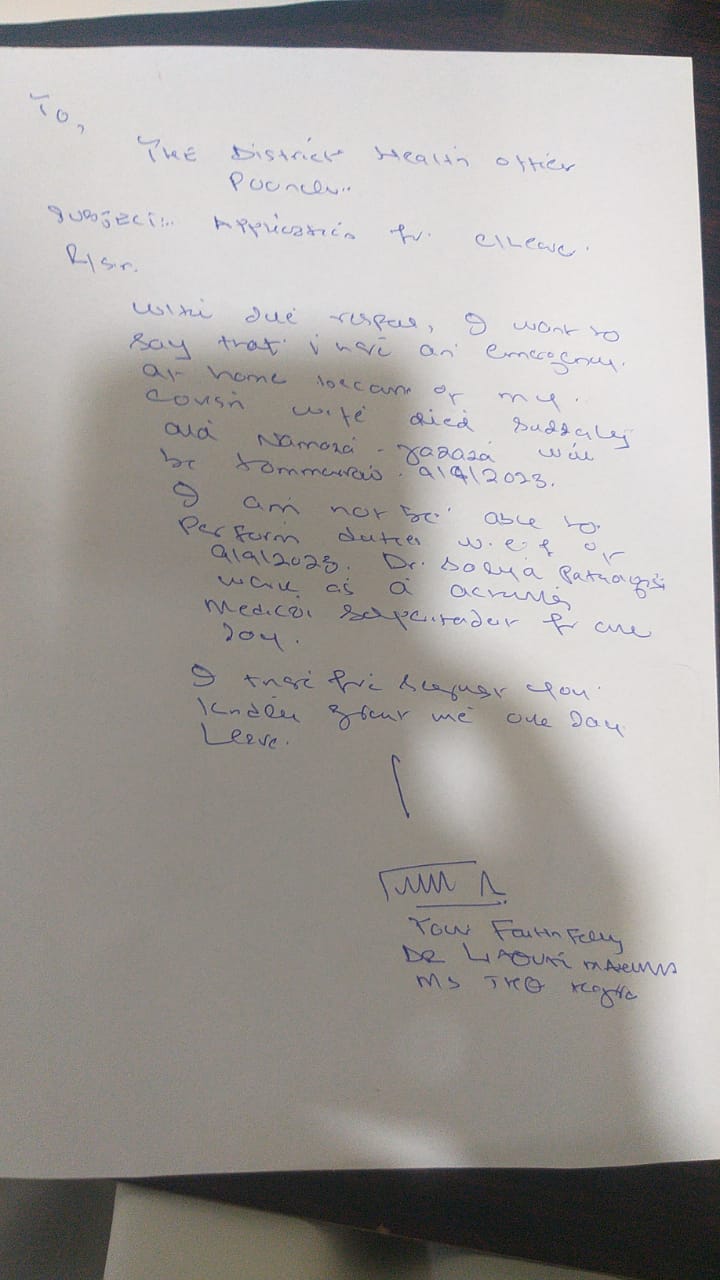 To,
THE District Health officer
Poonch..
SUBJECT:. Application for. c/Leave.
R/sir.
With due respec, I want to
say that i have an emergency.
at home because of my.
cousin wife died suddenly
and Namaza-Jazaza will
be tommorrao. 9/9/2023.
I am not be able to
Perform duties w.e.f or
9/9/2023. Dr. Pathologist
work as a acting
Medical for one
Day.
I you
kindly grant me one Day
Leave.
Your Faithfelly
DR
MS THQ